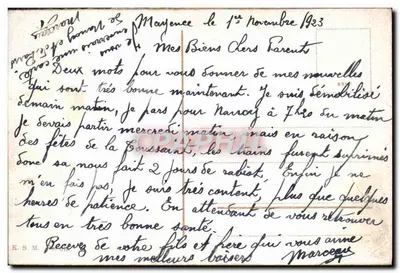 Mayence le 1er novembre 1923
Mes Biens Chers Parents
Deux mots pour vous donner de mes nouvelles
qui sont très bonne maintenant. Je suis démobilisé
demain matin, je pars pour Nancy à 7h20 du matin
je devais partir mercredi matin, mais en raison
des fêtes de la Toussaint, les trains furent suprimés
donc sa nous fait 2 jours de rabiot, Enfin je ne
m'en fais pas, je suis très content, plus que quelques
heures de patience. En attendant de vous retrouver
tous en très bonne santé.
Recevez de votre fils et frère qui vous aime
mes meilleurs baisers Marceau
je vous
enverrais une carte
de Nancy et de Paris
Marceau
K. S. M.